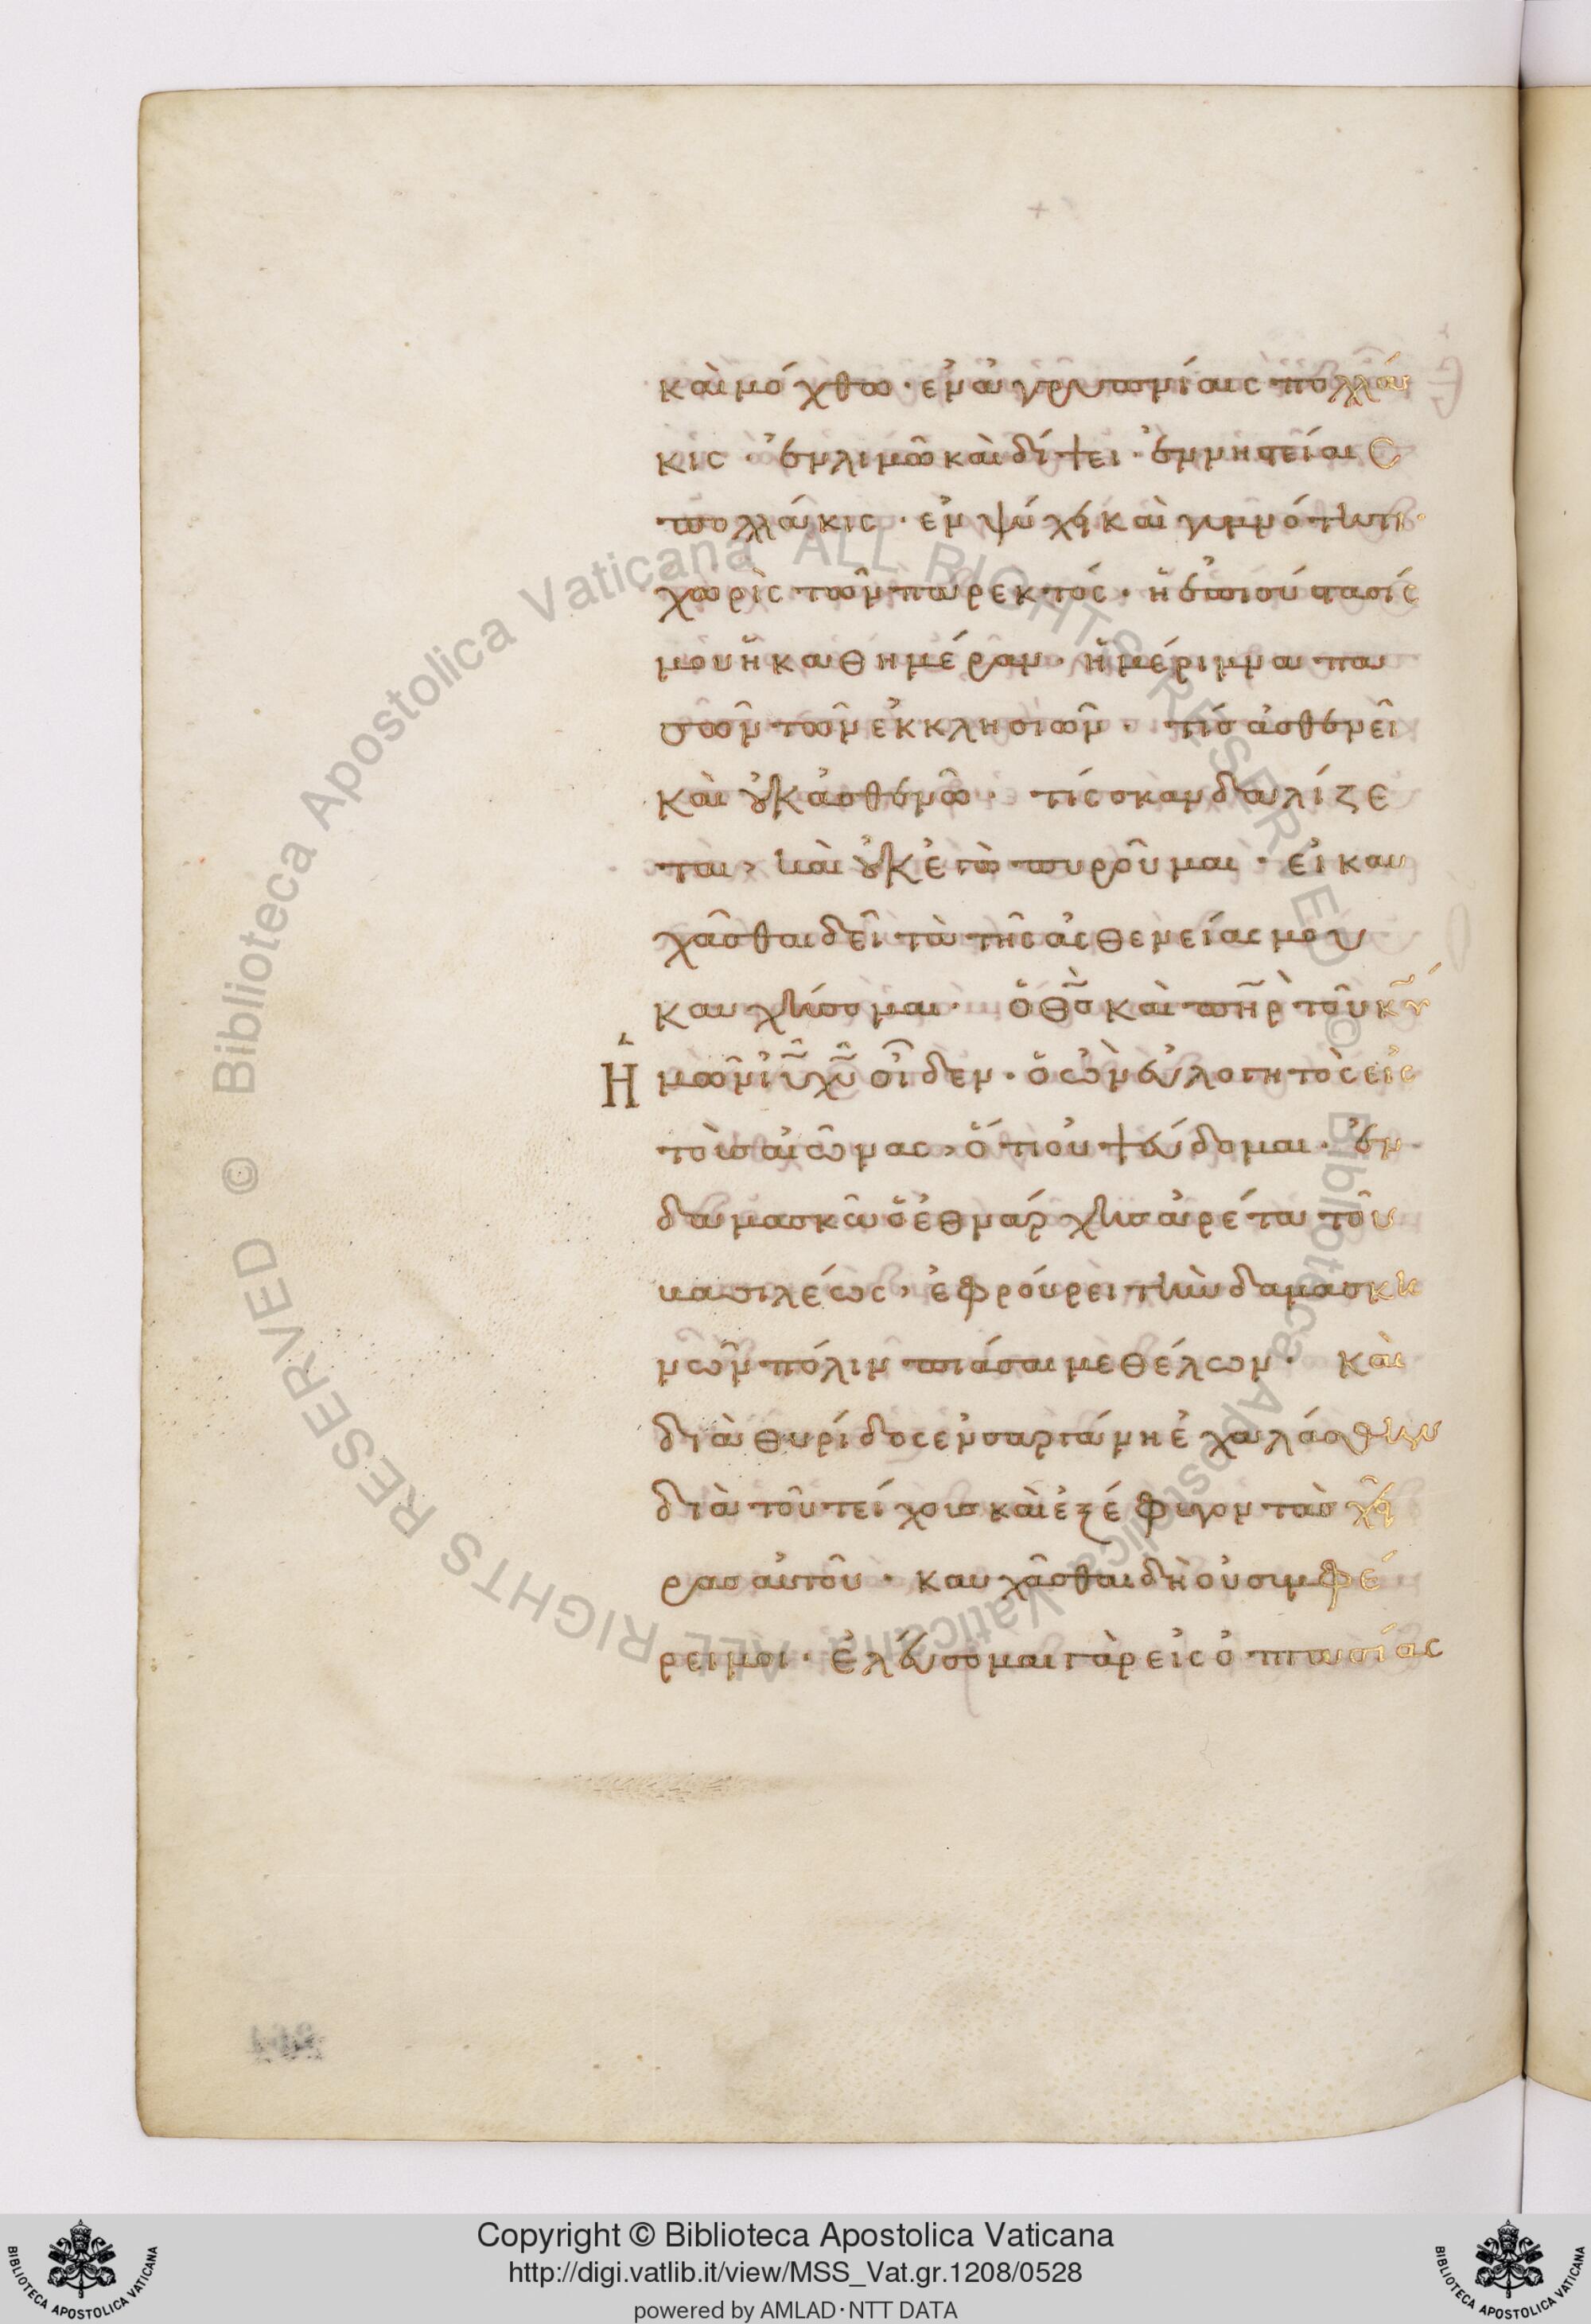 καὶ μόχθω· ἐν ἀγρυπνίαις πολλά
κις· ἐν λιμῶ καὶ δίψει· ἐν νηστείαις
πολλάκις· ἐν ψύχει καὶ γυμνότητι·
χωρὶς τῶν παρεκτός· ἡ ἐπισύστασίς
μου ἡ καθημέραν· ἡ μέριμνα πα
σῶν τῶν ἐκκλησιῶν· τίς ἀσθενεῖ
καὶ οὐκ ἀσθενῶ· τίς σκανδαλίζε
ται, καὶ οὐκ ἐγὼ πυροῦμαι· εἰ καυ
χᾶσθαι δεῖ τὰ τῆς ἀσθενείας μου
καυχήσομαι· ὁ θς καὶ πηρ τοῦ κυ
ἡμῶν ιυ χυ οἶδεν· ὁ ὢν εὐλογητὸς εἰς
τοὺς αἰῶνας, ὅτι οὐ ψεύδομαι· ἐν
δαμασκῶ ὁ ἐθνάρχης ἀρέτα τοῦ
βασιλέως, ἐφρούρει τὴν δαμασκη
νῶν πόλιν πιάσαι με θέλων· καὶ
διὰ θυρίδος ἐν σαργάνη ἐχαλάσθην
διὰ τοῦ τείχους καὶ ἐξέφυγον τὰς χεῖ
ρας αὐτοῦ· καυχᾶσθαι δὴ οὐ συμφέ
ρει μοι· ἐλεύσομαι γὰρ εἰς ὀπτασίας
Biblioteca Apostolica Vaticana ALL RIGHTS RESERVED ©
Biblioteca Apostolica Vaticana ALL RIGHTS RESERVED ©
Copyright © Biblioteca Apostolica Vaticana
http://digi.vatlib.it/view/MSS_Vat.gr.1208/0528
powered by AMLAD·NTT DATA
BIBLIOTECA APOSTOLICA VATICANA
BIBLIOTECA APOSTOLICA VATICANA